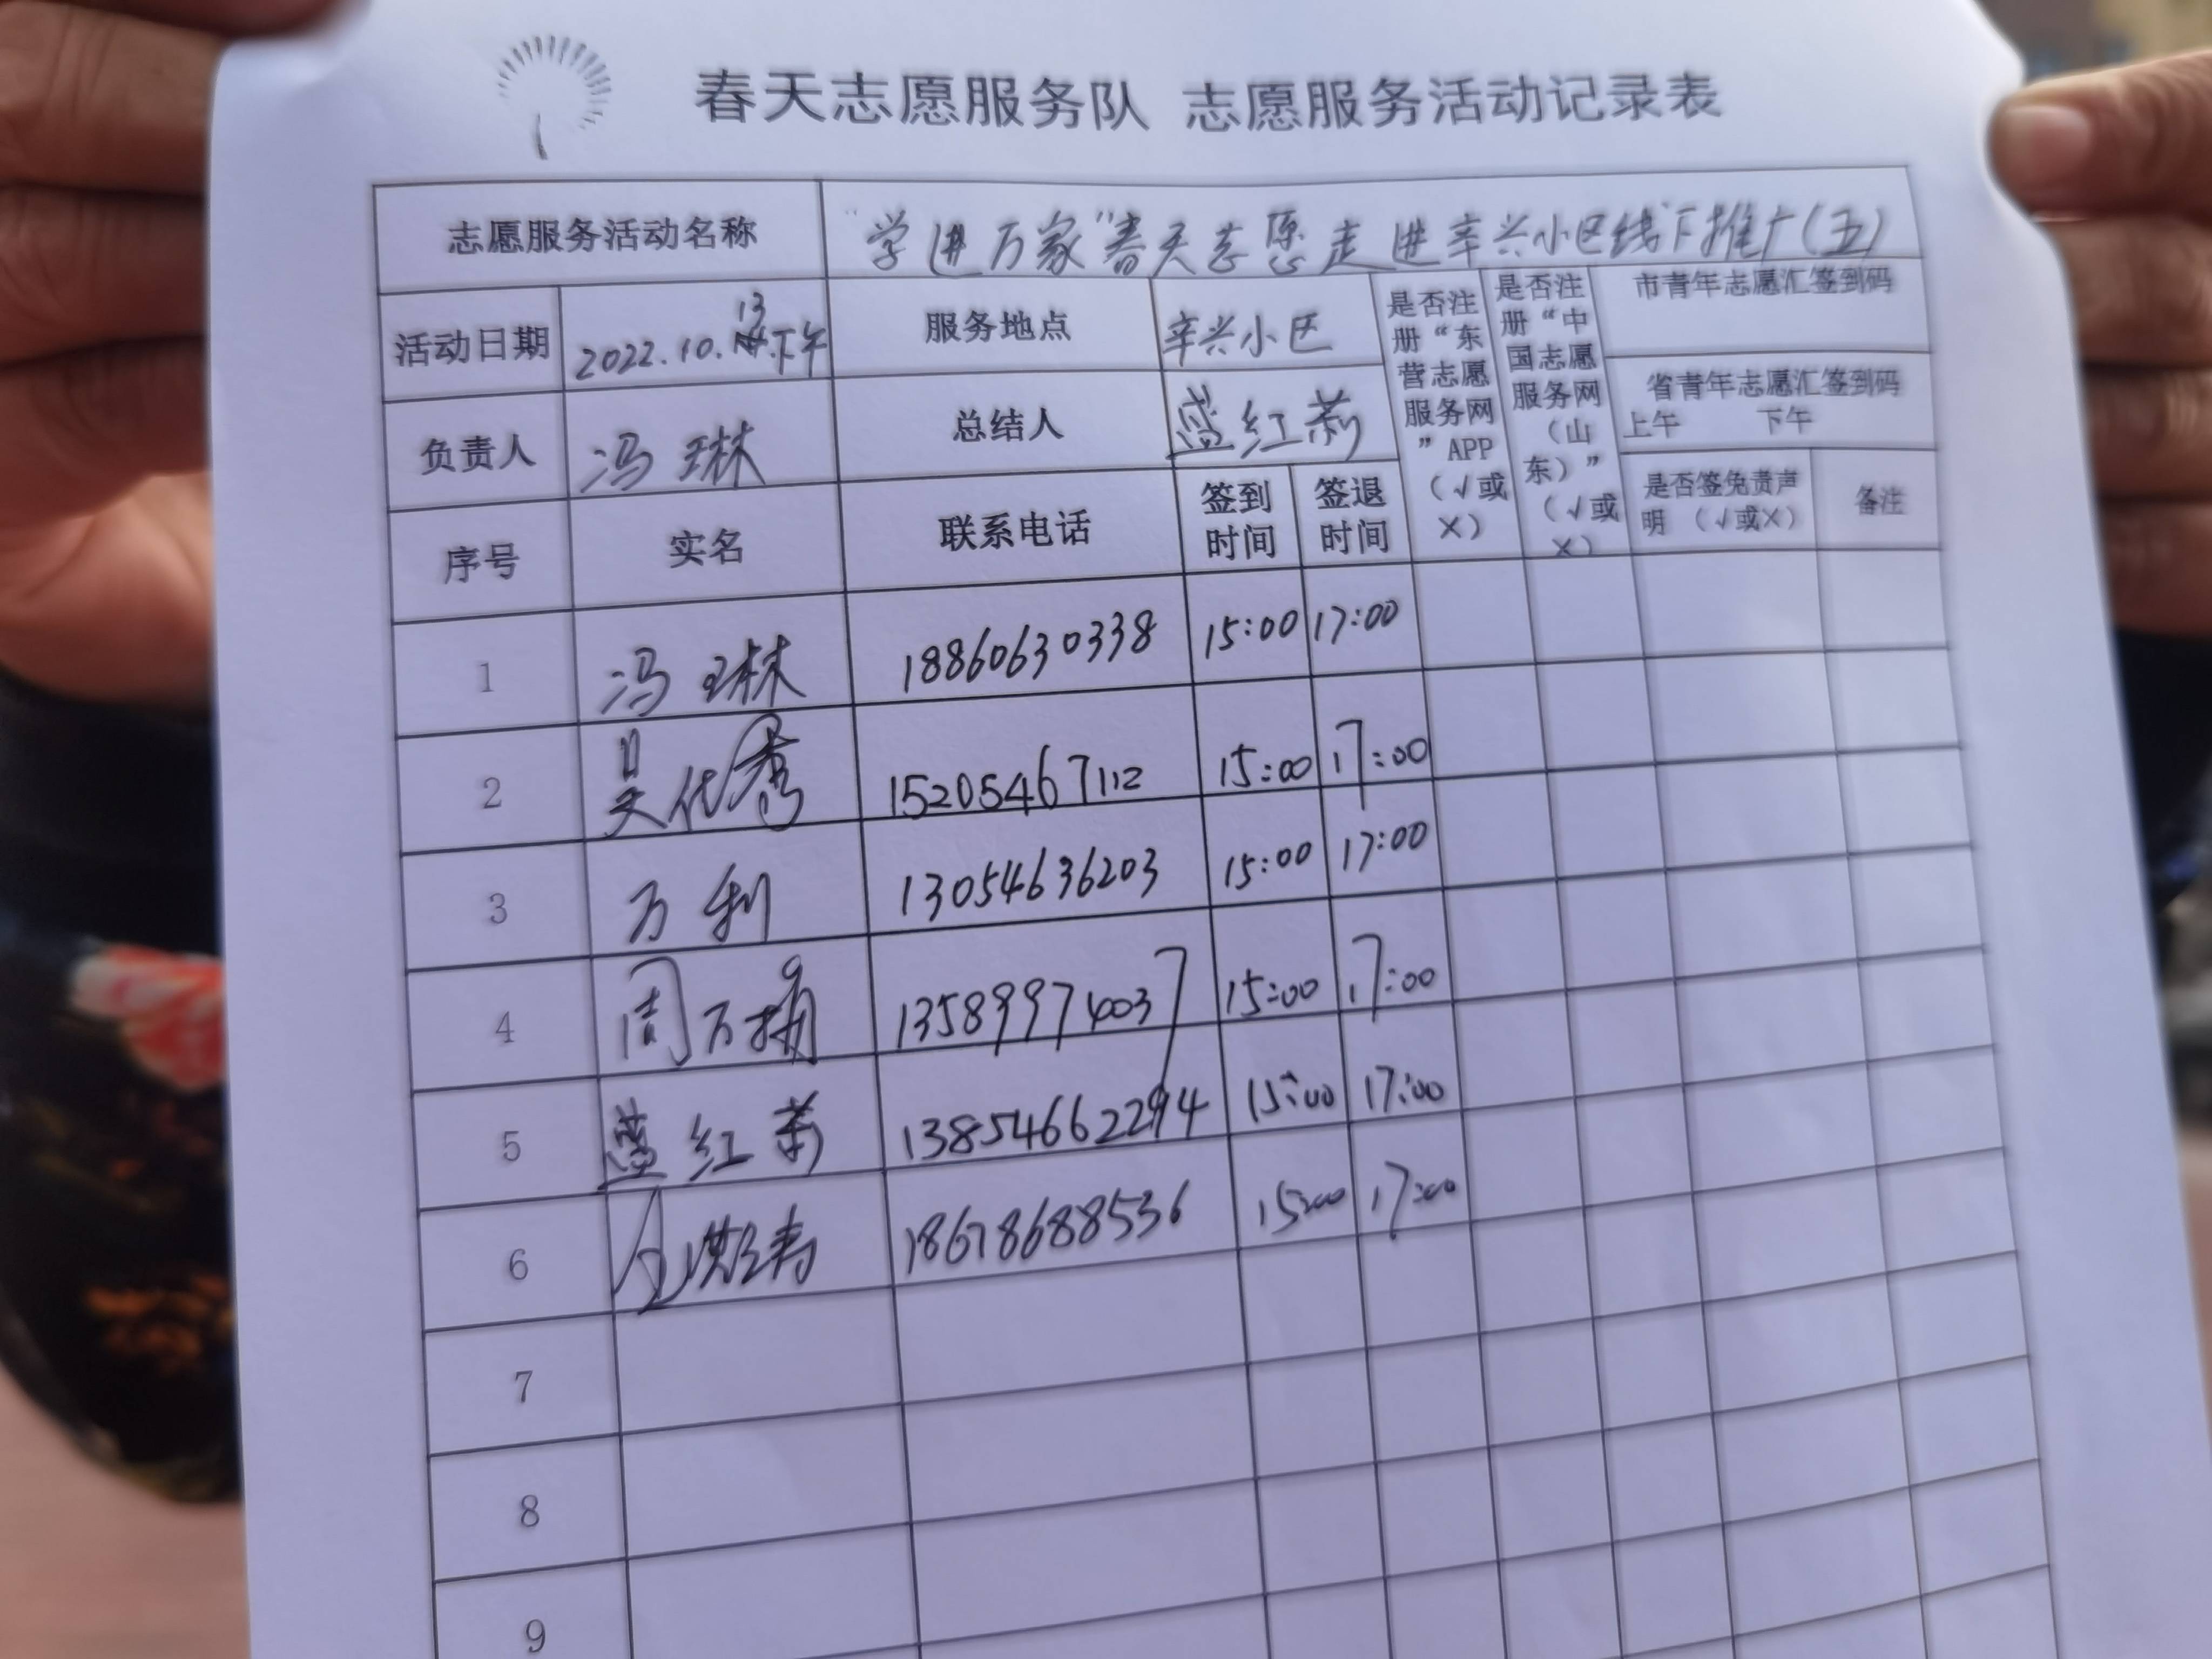 春天志愿服务队 志愿服务活动记录表
志愿服务活动名称 "学进万家"春天志愿走进辛兴小区线下推广(五)
活动日期 2022.10.13下午 服务地点 辛兴小区
是否注册“东营志愿服务网”APP（√或×）
是否注册“中国志愿服务网（山东）”（√或×）
市青年志愿汇签到码
省青年志愿汇签到码
上午 下午
负责人 冯琳 总结人 盛红莉
序号 实名 联系电话 签到时间 签退时间 是否签免责声明（√或×） 备注
1 冯琳 18860630338 15:00 17:00
2 吴代秀 15205467112 15:00 17:00
3 万利 13054636203 15:00 17:00
4 周万 13589974037 15:00 17:00
5 盛红莉 13854662294 15:00 17:00
6 18678688536 15:00 17:00
7
8
9